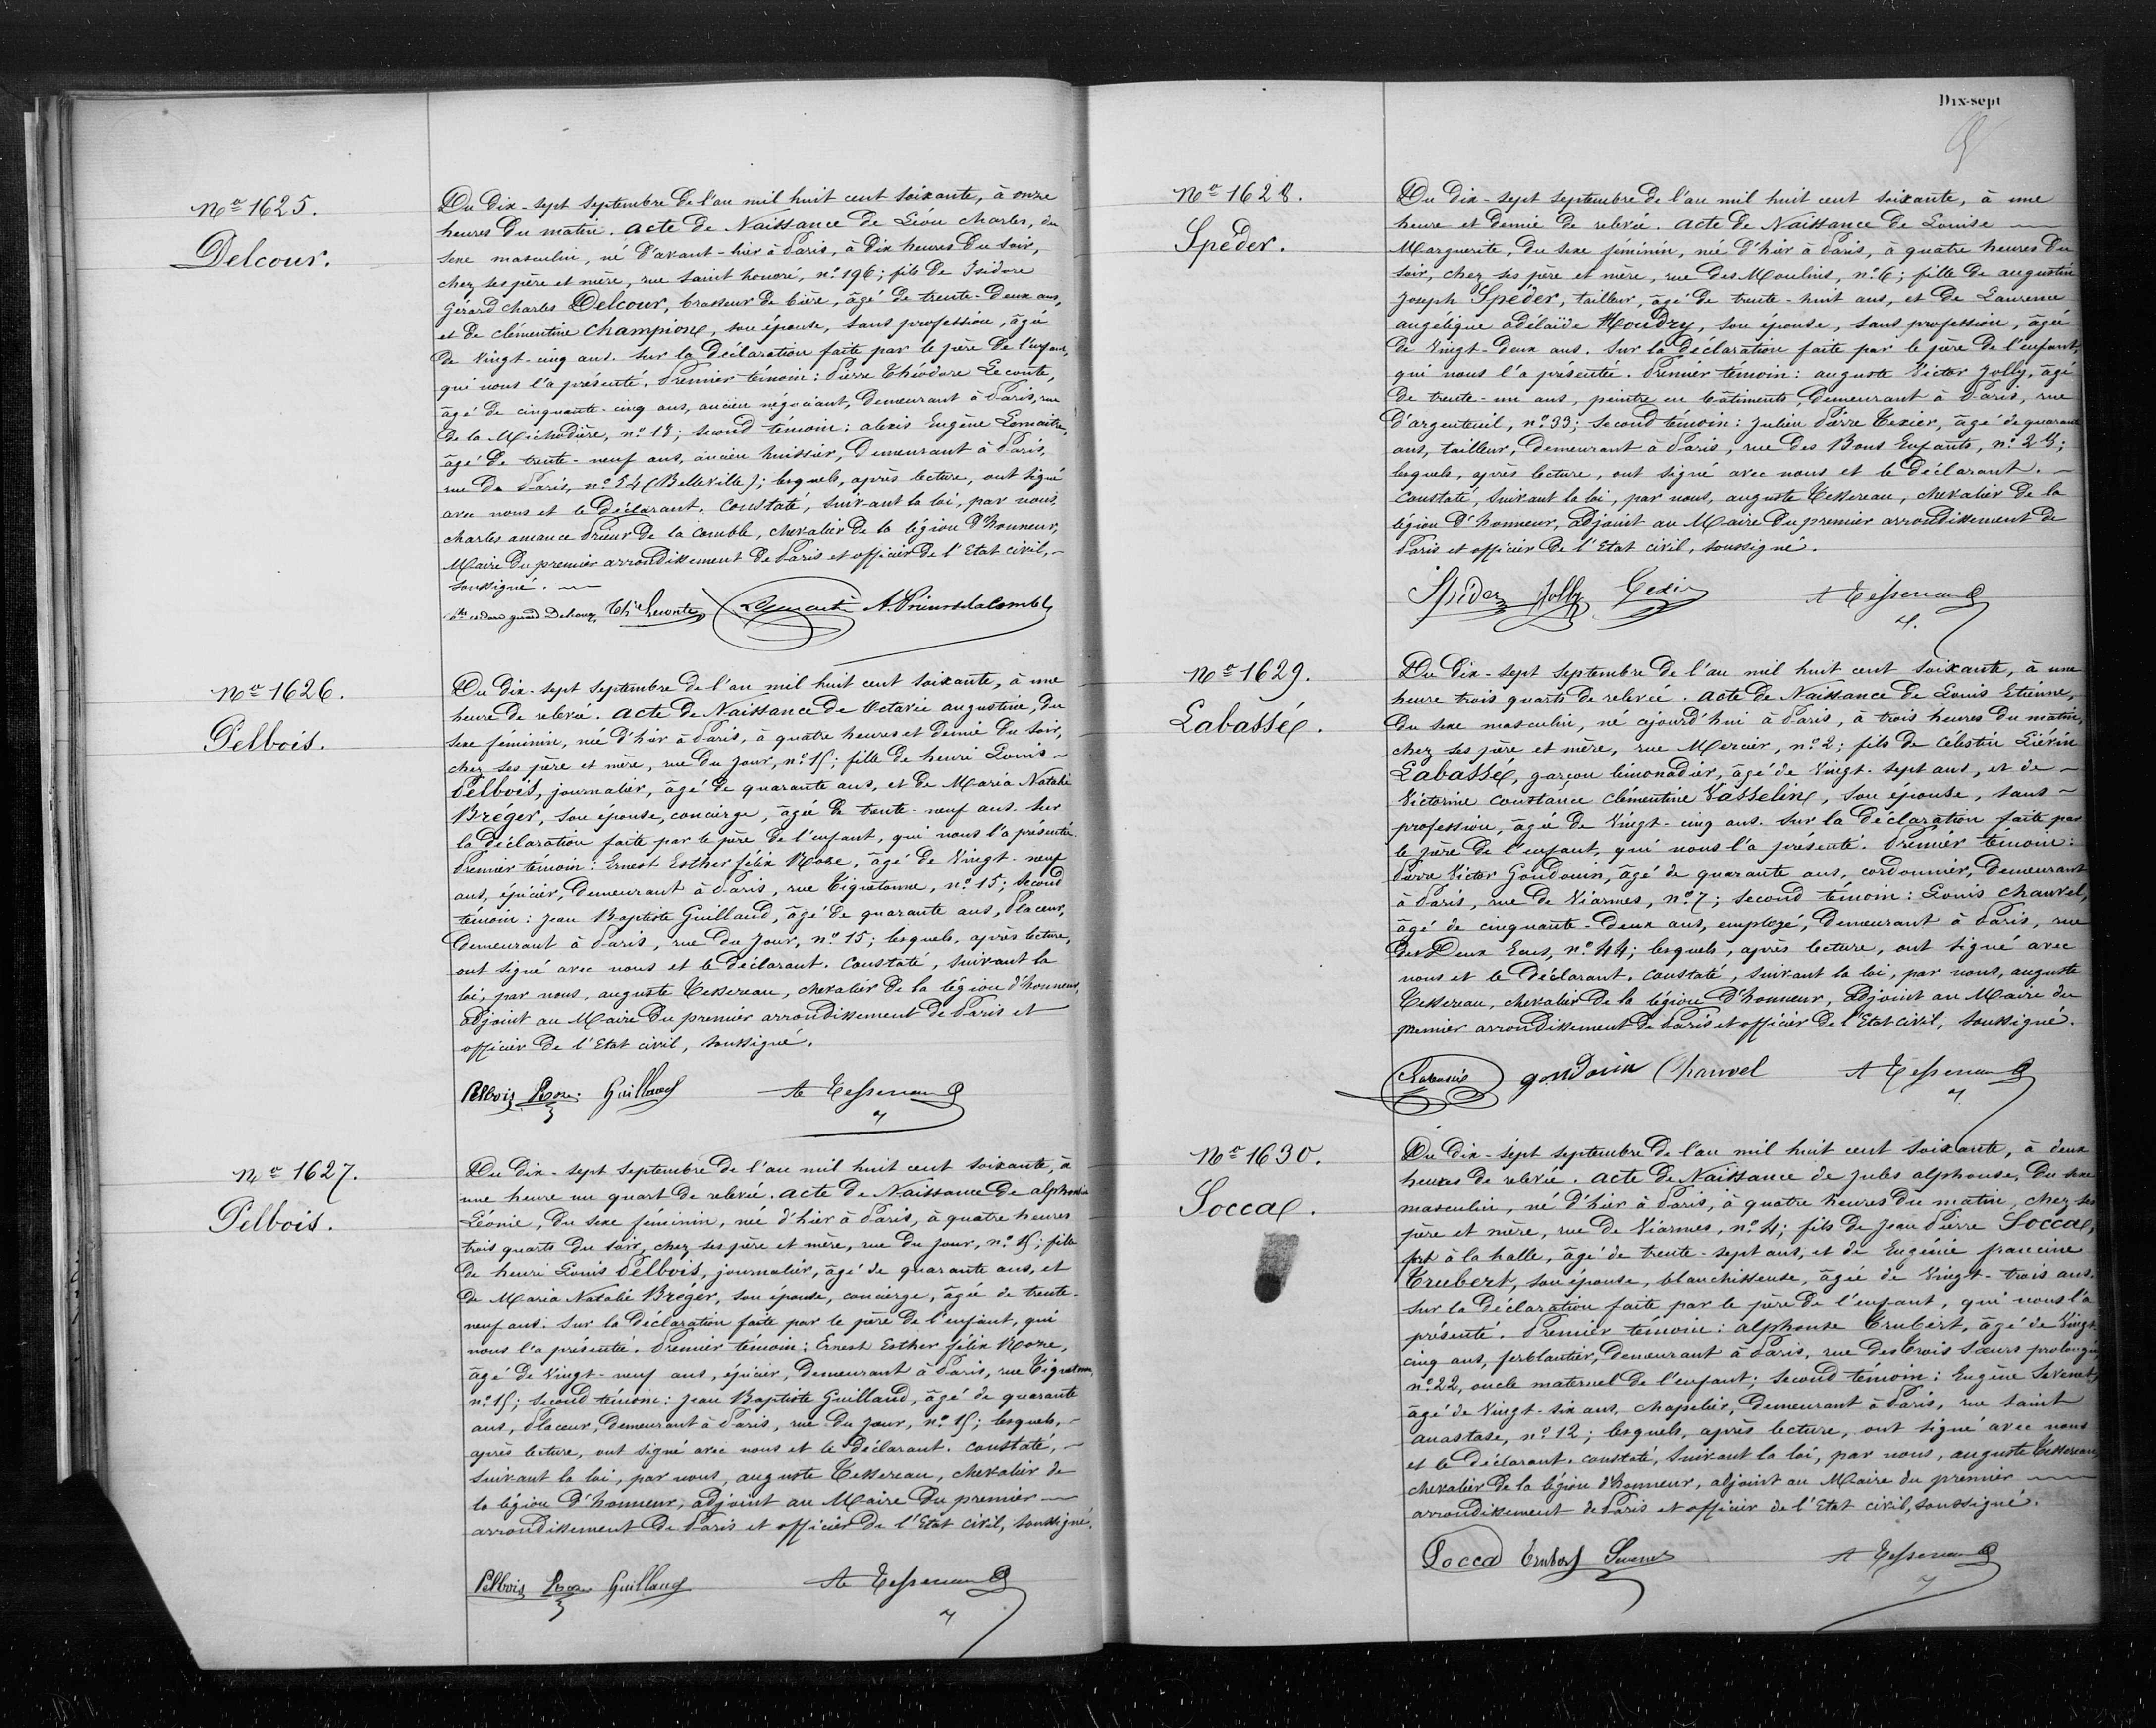 Nº 1625.
Delcour.
Du dix-sept septembre de l'an mil huit cent soixante, à onze
heures du matin. acte de Naissance de Léon charles, du
sexe masculin, né d'avant-hier à Paris, à dix heures du soir,
chez ses père et mère, rue saint honoré, nº 196; fils de Isidore
Gérard charles Delcour, brasseur de bière, âgé de trente-deux ans,
et de clémentine Champion, son épouse, sans profession, âgée
de vingt-cinq ans. sur la déclaration faite par le père de l'enfant,
qui nous l'a présenté. Premier témoin: Pierre Théodore Leconte,
âgé de cinquante-cinq ans, ancien négociant, demeurant à Paris, rue
de la Michodière, nº 13; second témoin: alexis Eugène Lemaitre,
âgé de trente-neuf ans, ancien huissier, demeurant à Paris,
rue de Paris, nº 54 (Belleville); lesquels, après lecture, ont signé
avec nous et le déclarant. constaté, suivant la loi, par nous,
charles amance Prieur de la comble, chevalier de la légion d'honneur,
Maire du premier arrondissement de Paris et officier de l'Etat civil,
soussigné.
Th. Leconte Lemaitre A. Prieur de la Comble
Nº 1626.
Pelbois.
Du dix-sept septembre de l'an mil huit cent soixante, à une
heure de relevée. acte de Naissance de Octavie augustine, du
sexe féminin, née d'hier à Paris, à quatre heures et demie du soir,
chez ses père et mère, rue du Jour, nº 15; fille de henri Louis
Pelbois, journalier, âgé de quarante ans, et de Maria Natalie
Bréger, son épouse, concierge, âgée de trente-neuf ans. sur
la déclaration faite par le père de l'enfant, qui nous l'a présenté.
Premier témoin: Ernest Esther félix Roze, âgé de vingt-neuf
ans, épicier, demeurant à Paris, rue Tiquetonne, nº 15; second
témoin: Jean Baptiste Guillaud, âgé de quarante ans, Placeur,
demeurant à Paris, rue du Jour, nº 15; lesquels, après lecture,
ont signé avec nous et le déclarant. constaté, suivant la
loi, par nous, auguste Tessereau, chevalier de la légion d'honneur,
adjoint au Maire du premier arrondissement de Paris et
officier de l'Etat civil, soussigné.
Pelbois Roze Guillaud A Tessereau
Nº 1627.
Pelbois.
Du dix-sept septembre de l'an mil huit cent soixante, à
une heure un quart de relevée. acte de Naissance de alphonsine
Léonie, du sexe féminin, née d'hier à Paris, à quatre heures
trois quarts du soir, chez ses père et mère, rue du Jour, nº 15; fille
de henri Louis Pelbois, journalier, âgé de quarante ans, et
de Maria Natalie Bréger, son épouse, concierge, âgée de trente-
neuf ans. sur la déclaration faite par le père de l'enfant, qui
nous l'a présenté. Premier témoin: Ernest Esther félix Roze,
âgé de vingt-neuf ans, épicier, demeurant à Paris, rue Tiquetonne,
nº 15; second témoin: Jean Baptiste Guillaud, âgé de quarante
ans, Placeur, demeurant à Paris, rue du Jour, nº 15; lesquels,
après lecture, ont signé avec nous et le déclarant. constaté,
suivant la loi, par nous, auguste Tessereau, chevalier de
la légion d'honneur, adjoint au Maire du premier
arrondissement de Paris et officier de l'Etat civil, soussigné.
Pelbois Roze Guillaud A Tessereau
Dix-sept
Nº 1628.
Speder.
Du dix-sept septembre de l'an mil huit cent soixante, à une
heure et demie de relevée. acte de Naissance de Louise
Marguerite, du sexe féminin, née d'hier à Paris, à quatre heures du
soir, chez ses père et mère, rue des Moulins, nº 6; fille de augustin
Joseph Speder, tailleur, âgé de trente-huit ans, et de Laurence
angélique adélaïde Houdry, son épouse, sans profession, âgée
de vingt-deux ans. sur la déclaration faite par le père de l'enfant,
qui nous l'a présentée. Premier témoin: auguste Victor Jolly, âgé
de trente-un ans, peintre en bâtiments, demeurant à Paris, rue
d'argenteuil, nº 33; second témoin: Julien Pierre Texier, âgé de quarante
ans, tailleur, demeurant à Paris, rue des Bons Enfants, nº 23;
lesquels, après lecture, ont signé avec nous et le déclarant.
constaté, suivant la loi, par nous, auguste Tessereau, chevalier de la
légion d'honneur, adjoint au Maire du premier arrondissement de
Paris et officier de l'Etat civil, soussigné.
Speder Jolly Texier A Tessereau
Nº 1629.
Labassé.
Du dix-sept septembre de l'an mil huit cent soixante, à une
heure trois quarts de relevée. acte de Naissance de Louis Etienne,
du sexe masculin, né cejourd'hui à Paris, à trois heures du matin,
chez ses père et mère, rue Mercier, nº 2; fils de célestin Liévin
Labassé, garçon limonadier, âgé de vingt-sept ans, et de
Victorine constance clémentine Vasseline, son épouse, sans
profession, âgée de vingt-cinq ans. sur la déclaration faite par
le père de l'enfant, qui nous l'a présenté. Premier témoin:
Pierre Victor Goudouin, âgé de quarante ans, cordonnier, demeurant
à Paris, rue de Viarmes, nº 7; second témoin: Louis chauvel,
âgé de cinquante-deux ans, employé, demeurant à Paris, rue
des Deux Ecus, nº 44; lesquels, après lecture, ont signé avec
nous et le déclarant. constaté, suivant la loi, par nous, auguste
Tessereau, chevalier de la légion d'honneur, adjoint au Maire du
premier arrondissement de Paris et officier de l'Etat civil, soussigné.
Labassé goudouin Chauvel A Tessereau
Nº 1630.
Socca.
Du dix-sept septembre de l'an mil huit cent soixante, à deux
heures de relevée. acte de Naissance de Jules alphonse, du sexe
masculin, né d'hier à Paris, à quatre heures du matin, chez ses
père et mère, rue de Viarmes, nº 4; fils de Jean Pierre Socca,
fort à la halle, âgé de trente-sept ans, et de Eugénie francine
Trubert, son épouse, blanchisseuse, âgée de vingt-trois ans.
sur la déclaration faite par le père de l'enfant, qui nous l'a
présenté. Premier témoin: alphonse Trubert, âgé de vingt-
cinq ans, ferblantier, demeurant à Paris, rue des Trois sœurs prolongée
nº 22, oncle maternel de l'enfant; second témoin: Eugène Sevenet,
âgé de vingt-six ans, chapelier, demeurant à Paris, rue saint
anastase, nº 12; lesquels, après lecture, ont signé avec nous
et le déclarant. constaté, suivant la loi, par nous, auguste Tessereau,
chevalier de la légion d'honneur, adjoint au Maire du premier
arrondissement de Paris et officier de l'Etat civil, soussigné.
Socca Trubert Sevenet A Tessereau